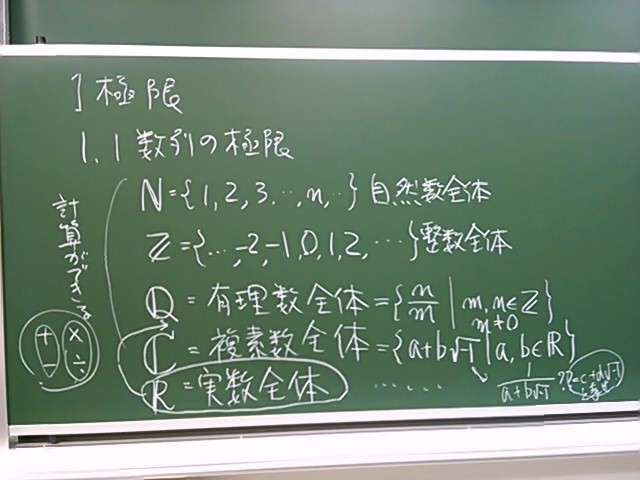 1 極限
1.1 数列の極限
N={1,2,3…,n,…} 自然数全体
Z={…,-2,-1,0,1,2,…} 整数全体
Q = 有理数全体 = {n/m | m,n∈Z}
m≠0
C = 複素数全体 = {a+b√-1 | a,b∈R}
R = 実数全体 ……
1/(a+b√-1) ??=c+d√-1
計算ができる
+ − × ÷